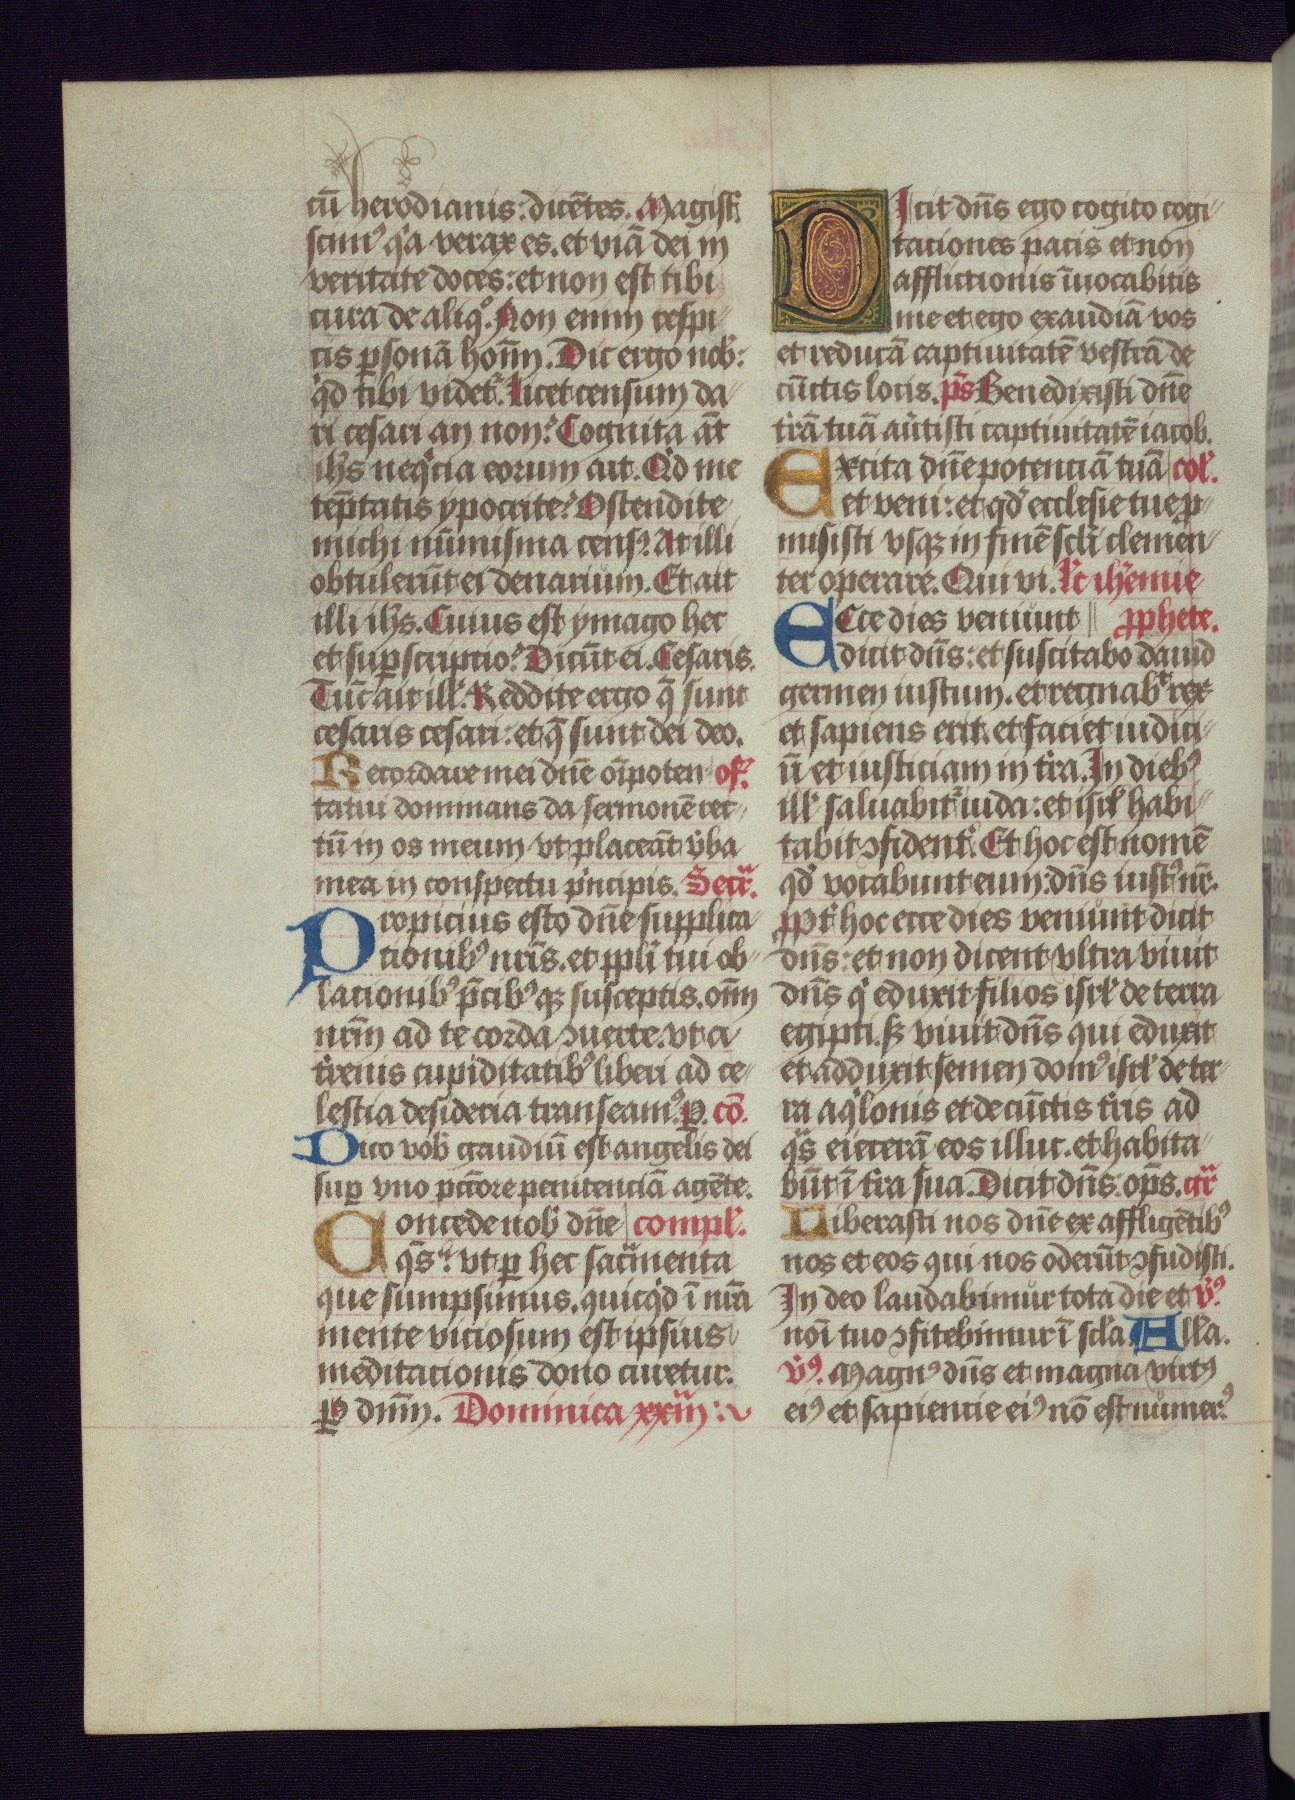 cū herodianis: dicētes. Magistᷣ
scimꝰ qͥa verax es. et viā dei in
veritate doces: et non est tibi
cura de aliqͦ. Non enim respi-
cis ꝑsonā hoīm. Dic ergo nob̛:
qͥd tibi videtᷣ. Licet censum da-
ri cesari an non? Cognita āt
ih̄s neqͥcia eorum ait. Qͥd me
tēptatis ypocrite? Ostendite
michi nūmisma censꝰ. At illi
obtulerūt ei denarium. Et ait
illi ih̄s. Cuius est ymago hec
et suꝑscriptio? Dicūt ei. Cesaris.
Tūc ait ill̛. Reddite ergo q̄ sunt
cesaris cesari: et q̄ sunt dei deo.
Recordare mei dn̄e oīpoten of̛.
tatui dominans da sermonē rec-
tū in os meum vt placeāt v̛ba
mea in conspectu pͥncipis. Secr̄.
Propicius esto dn̄e supplica-
tionibꝰ nr̄is. et ppl̛i tui ob-
lationibꝰ p̄cibꝰqꝫ susceptis. oīm
nr̄m ad te corda ꝯuerte. vt a
t̛renis cupiditatibꝰ liberi ad ce-
lestia desideria transeamꝰ. P. cō.
Dico vob̛ gaudiū est angelis dei
suꝑ vno pctōre penitenciā agēte.
Concede nob̛ dn̄e compl̛.
q̄sꝰ. vt ꝑ hec sacͣmenta
que sumpsimus. quicqͥd ī nr̄a
mente viciosum est ipsius
meditacionis dono curetur.
Per dn̄m. Dominica xxiii:
Dicit dn̄s ego cogito cogi-
taciones pacis et non
afflictionis īuocabitis
me et ego exaudiā vos
et reducā captiuitatē vestrā de
cūctis locis. p̄s Benedixisti dn̄e
t̛rā tuā aưtisti captiuitatē iacob.
Excita dn̄e potenciā tuā col̛.
et veni: et qd̛ ecclesie tue ꝓ-
misisti vsqꝫ in finē scl̛i clemen-
ter operare. Qui vi. Lc̄ ih̛emie
Ecce dies veniunt ꝓphete.
dicit dn̄s: et suscitabo dauid
germen iustum. et regnabit rex
et sapiens erit. et faciet iudici-
ū et iusticiam in t̛ra. In diebꝰ
ill̛ saluabitᷣ iuda: et isrl̛ habi-
tabit ꝯfidentᷣ. Et hoc est nomē
qd̛ vocabunt eum: dn̄s iustꝰ nr̄.
ꝓpt̛ hoc ecce dies veniunt dicit
dn̄s: et non dicent vltra viuit
dn̄s qͥ eduxit filios isrl̛ de terra
egipti. sꝫ viuit dn̄s qui eduxit
et adduxit semen domꝰ isrl̛ de ter-
ra aqͥlonis et de cūctis t̛ris ad
qͣs eieceram eos illuc. et habita-
būt ī t̛ra sua. Dicit dn̄s. op̄s. gr̄
Liberasti nos dn̄e ex affligētibꝰ
nos et eos qui nos oderūt ꝯfudisti.
In deo laudabimur tota die et v̛ꝰ
noī tuo ꝯfitebimur ī scl̛a Alla.
v̛ꝰ. Magnꝰ dn̄s et magna virtꝰ
eiꝰ et sapiencie eiꝰ nō est numerꝰ